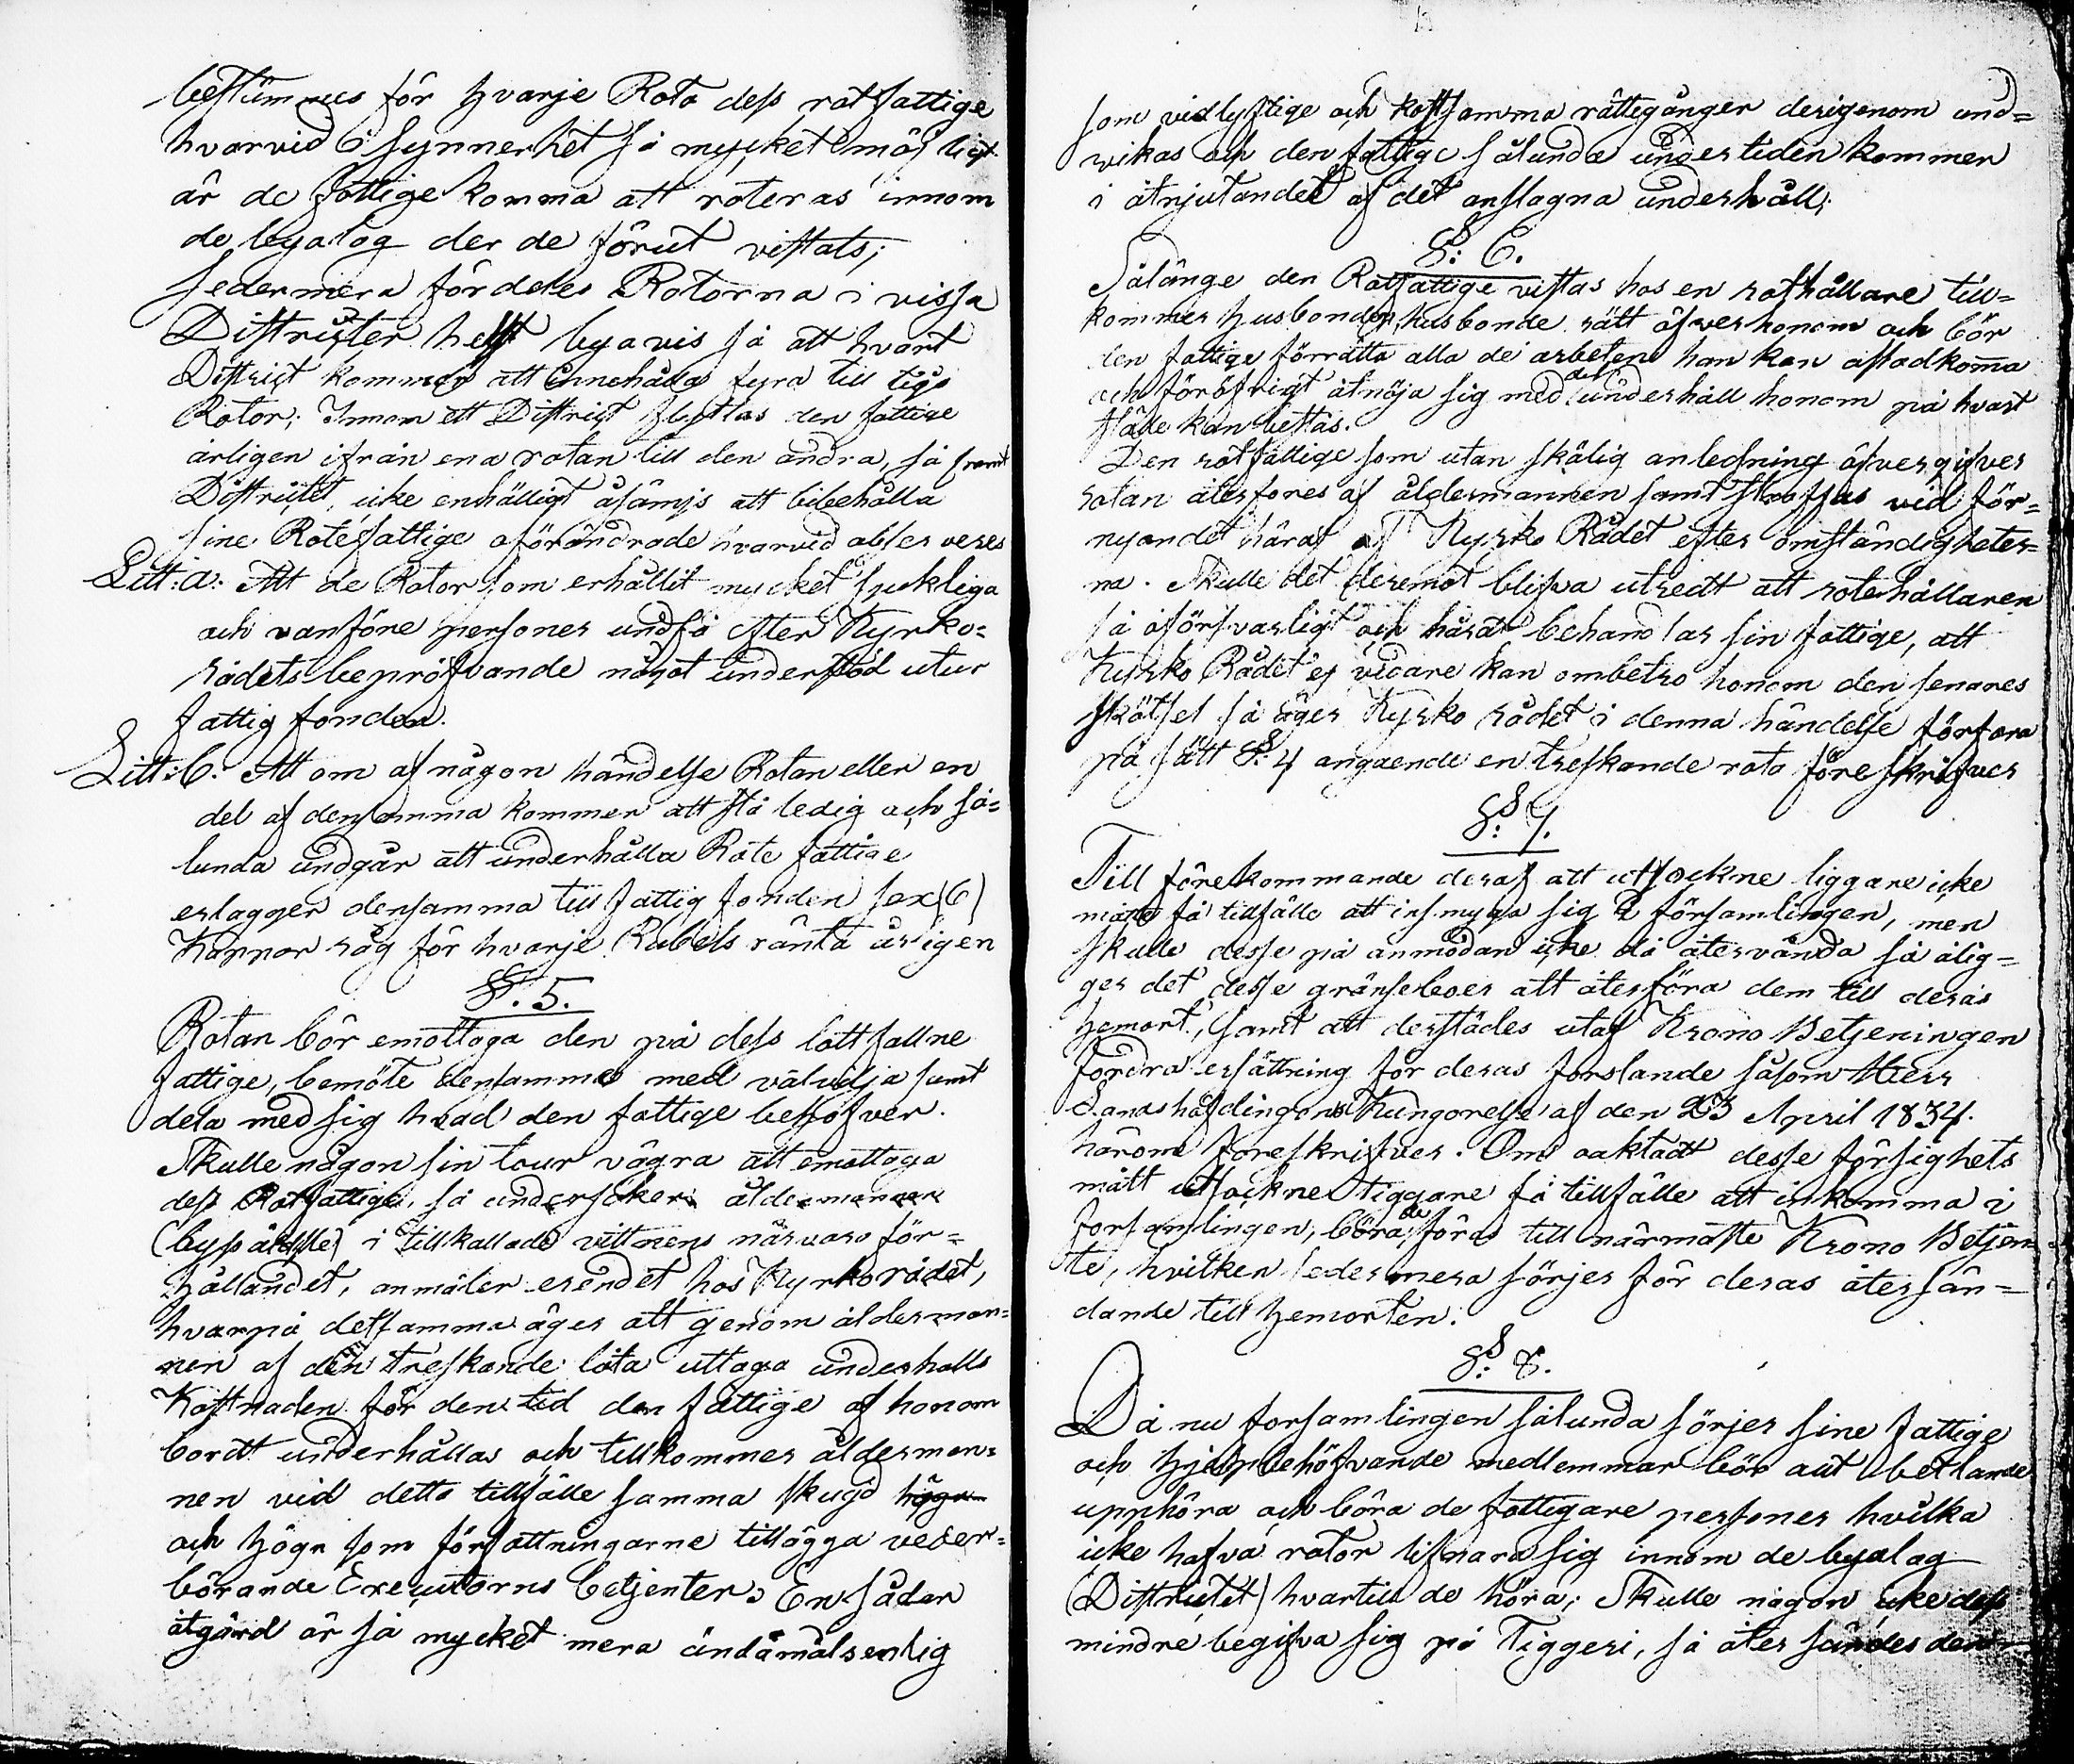 bestämmes för hvarje Rota dess rotfattige
hvarvid i synnerhet så mycket möjligt
är de fattige komma att roteras innom
de byalag der de förut vistats;
sedermera fördeles Rotorna i vissa
Districter helst byavis så att hvart
District kommer att innehålla fyra till tijo
Rotor; Innom ett District flyttas den fattige
årligen ifrån ena rotan till den andra, så framt
Districtet icke enhälligt åsämjs att bibehålla
sine Rotefattige oförändrade hvarvid observeres
Litt: a: Att de Rotor som erhållit mycket sjukliga
och vanföre personer undfå efter Kyrko=
rådets bepröfvande något understöd utur
fattig fonden.
Litt: b: Att om af någon händelse Rotan eller en
del af densamma kommer att stå ledig och så=
lunda undgår att underhålla Rote fattige
erlägger densamma till fattig fonden sex (6)
Kappar råg för hvarje Rubels ränta årligen
§. 5.
Rotan bör emottaga den på dess lott fallne
fattige, bemöte densamma med välvilja samt
dela med sig hvad den fattige behöfver.
Skulle någon sin tour vägra att emottaga
dess Rotfattige, så undersöker åldermannen
(byså) i tillkallade vittnens närvaro för=
hållandet, anmäler erendet hos Kyrkorådet,
hvarpå detsamma äger att genom ålderman=
nen af den tredskande låta uttaga underhålls
Kostnaden för den tid den fattige af honom
bordt underhållas och tillkommer ålderman=
nen vid detta tillfälle samma skygd högn
och högn som författningarne tillägga veder=
börande Executorns betjenter. En sådan
åtgärd är så mycket mera ändamålsenlig
som vidlyftige och kostsamma rättegånger derigenom und=
vikas och den fattige sålunda under tiden kommer
i åtnjutandet af det anslagna underhåll;
§: 6.
Sålänge den Rotfattige vistas hos en rothållare till=
kommer husbonden husbonde rätt öfver honom och bör
den fattige förrätta alla de arbeten han kan åstadkomma
och föröfrigt åtnöja sig med det underhåll honom på hvart
ställe kan bestås.
Den rotfattige som utan skälig anledning öfvergifver
rotan återföres af åldermannen samt straffas vid för=
nyandet häraf af Kyrko Rådet efter omständigheter=
na. Skulle det deremot blifva utredt att rotehållaren
så oförsvarligt och hårdt behandlar sin fattige, att
Kyrko Rådet ej vidare kan ombetro honom den senares
skötsel så äger Kyrko rådet i denna händelse förfara
på sätt §: 4 angaende en treskande rota föreskrifver
§: 7.
Till förekommande deraf att utsockne tiggare icke
måtte få tillfälle att insmyga sig i församlingen, men
skulle desse på anmodan icke då återvända så ålig=
ger det desse gränseboer att återföra dem till deras
hemort, samt att derstädes utaf Krono Betjeningen
fordra ersättning för deras forslande såsom Herr
Landshöfdingens Kungörelse af den 23 April 1834.
härom föreskrifver. Om oaktadt desse försighets
mått utsockne tiggare få tillfälle att inkomma i
församlingen, böra de föras till närmaste Krono Betjen=
te, hvilken sedermera sörjer för deras återsän=
dande till hemorten.
§: 8.
Då nu församlingen sålunda sörjer sine fattige
och hjelpbehöfvande medlemmar bör allt betlande
upphöra och böra de fattigare personer hvilka
icke hafva rotor lifnära sig innom de byalag
(Districtet) hvartill de höra; Skulle någon icke dess
mindre begifva sig på Tiggeri, så åter sändes den